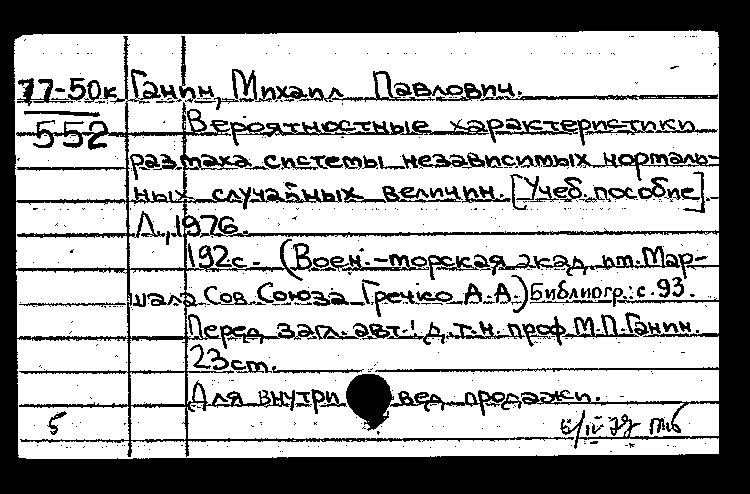 77-50к Ганин, Михаил Павлович.
552 Вероятностные характеристики
размаха системы независимых нормаль-
ных случайных величин. [Учеб. пособие]
Л., 1976.
192с. (Воен.-морская акад. им. Мар-
шала Сов. Союза Гречко А.А.) Библиогр.: с. 93.
Перед загл. авт.: д.т.н. проф М.П. Ганин.
23 ст.
Для внутри вед продажи.
5